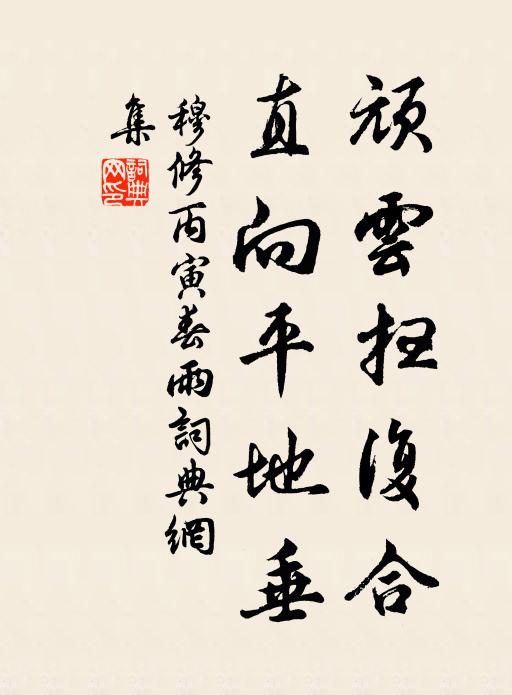 頑雲扫復合
直向平地垂
穆修丙寅春雨詞典網
集
詞典網印